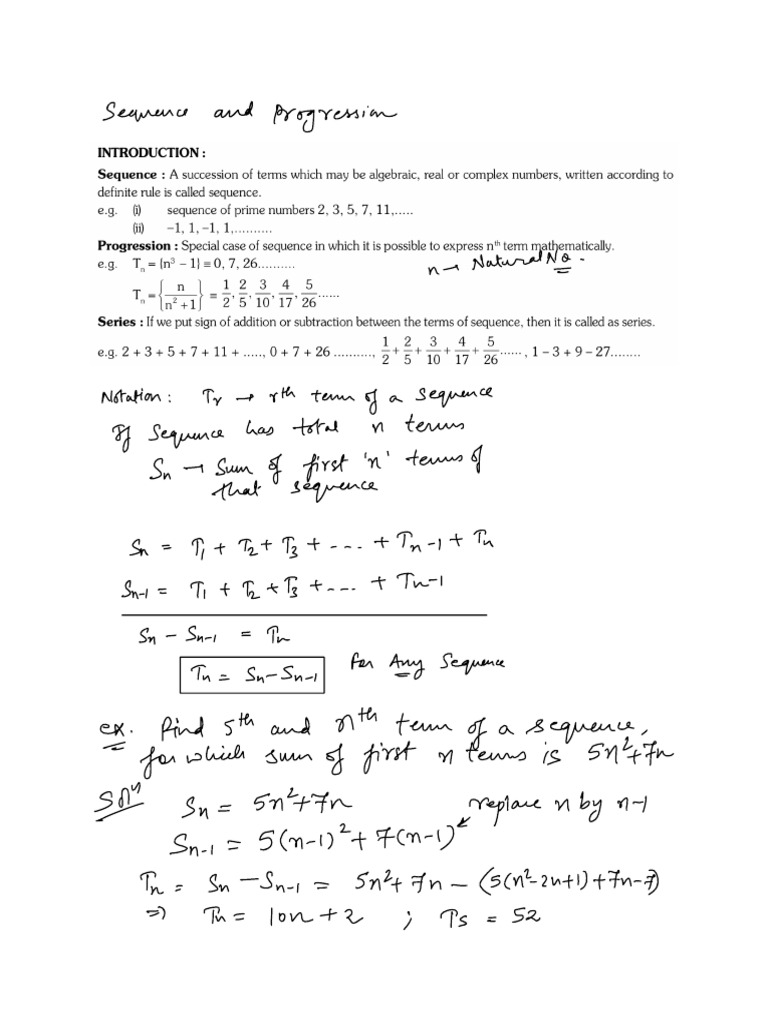 Sequence and Progression
INTRODUCTION :
Sequence : A succession of terms which may be algebraic, real or complex numbers, written according to
definite rule is called sequence.
e.g. (i) sequence of prime numbers 2, 3, 5, 7, 11,.....
(ii) –1, 1, –1, 1,..........
Progression : Special case of sequence in which it is possible to express nᵗʰ term mathematically.
e.g. Tₙ = {n³ – 1} ≡ 0, 7, 26..........
n → Natural No.
Tₙ = {n/(n² + 1)} = 1/2, 2/5, 3/10, 4/17, 5/26......
Series : If we put sign of addition or subtraction between the terms of sequence, then it is called as series.
e.g. 2 + 3 + 5 + 7 + 11 + ....., 0 + 7 + 26 .........., 1/2 + 2/5 + 3/10 + 4/17 + 5/26 ...... , 1 – 3 + 9 – 27........
Notation : Tr → rth term of a sequence
If sequence has total n terms
Sn → Sum of first 'n' terms of
that sequence
Sn = T1 + T2 + T3 + --- + Tn-1 + Tn
Sn-1 = T1 + T2 + T3 + --- + Tn-1
Sn - Sn-1 = Tn
Tn = Sn - Sn-1 for Any Sequence
ex. Find 5th and nth term of a sequence,
for which sum of first n terms is 5n²+7n
Solⁿ Sn = 5n²+7n replace n by n-1
Sn-1 = 5(n-1)² + 7(n-1)
Tn = Sn - Sn-1 = 5n²+7n - (5(n²-2n+1)+7n-7)
=> Tn = 10n+2 ; T5 = 52